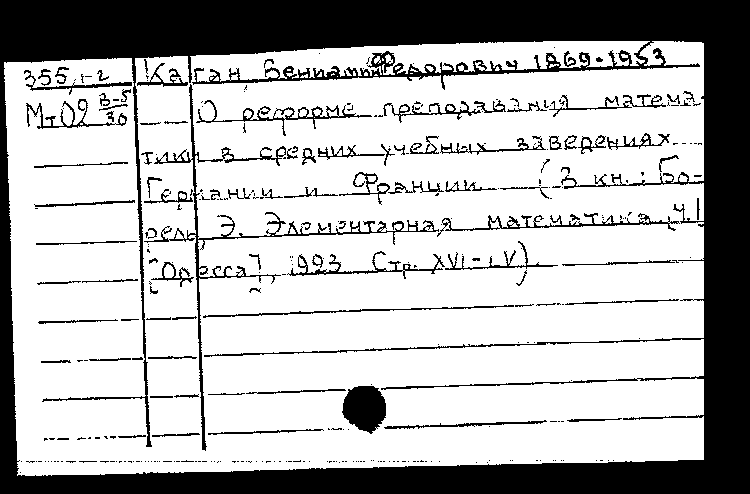 355,1-2 Каган, Вениамин Федорович 1869-1953
МтО2 В-5/30 О реформе преподавания матема-
тики в средних учебных заведениях
Германии и Франции (В кн.: Бо-
рель, Э. Элементарная математика. Ч.1
[Одесса], 1923 Стр. XVI-LV).